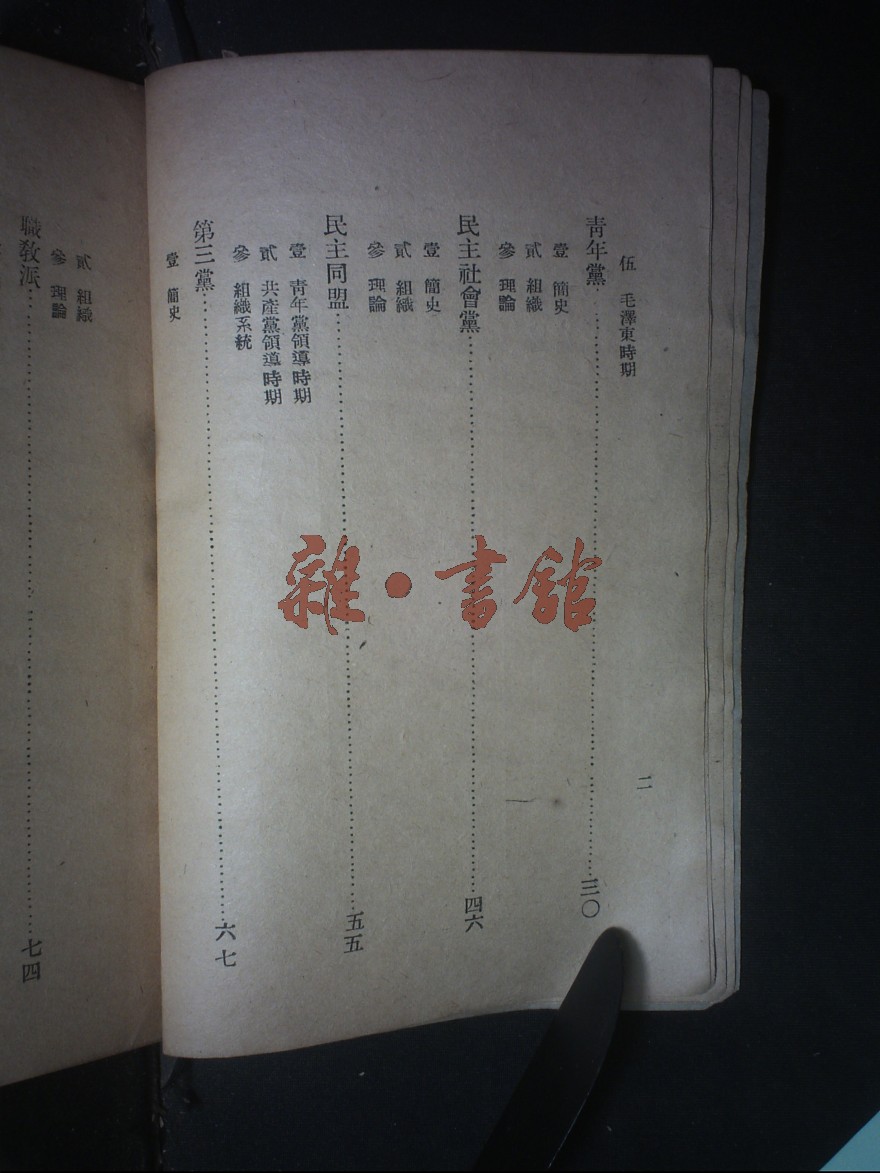 伍 毛澤東時期
青年黨……三〇
壹 簡史
貳 組織
參 理論
民主社會黨……四六
壹 簡史
貳 組織
參 理論
民主同盟……五五
壹 青年黨領導時期
貳 共產黨領導時期
參 組織系統
第三黨……六七
壹 簡史
二
貳 組織
參 理論
職敎派……七四
雜·書館